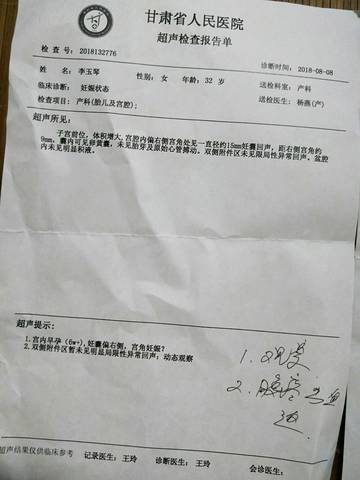 甘肃省人民医院
超声检查报告单
检查号：2018132776
诊断时间：2018-08-08
姓名：李玉琴 性别：女 年龄：32 岁 送检科室：产科
临床诊断：妊娠状态 送检医生：杨燕(产)
检查项目：产科(胎儿及宫腔)；
超声所见：
子宫前位，体积增大，宫腔内偏右侧宫角处见一直径约15mm妊囊回声，距右侧宫角约
9mm，囊内可见卵黄囊，未见胎芽及原始心管搏动。双侧附件区未见局限性异常回声。盆腔
内未见明显积液。
超声提示：
1.宫内早孕(6w+)，妊囊偏右侧，宫角妊娠？
2.双侧附件区暂未见明显局限性异常回声；动态观察
1.
2.
超声结果仅供临床参考 记录医生：王玲 诊断医生：王玲 会诊医生：